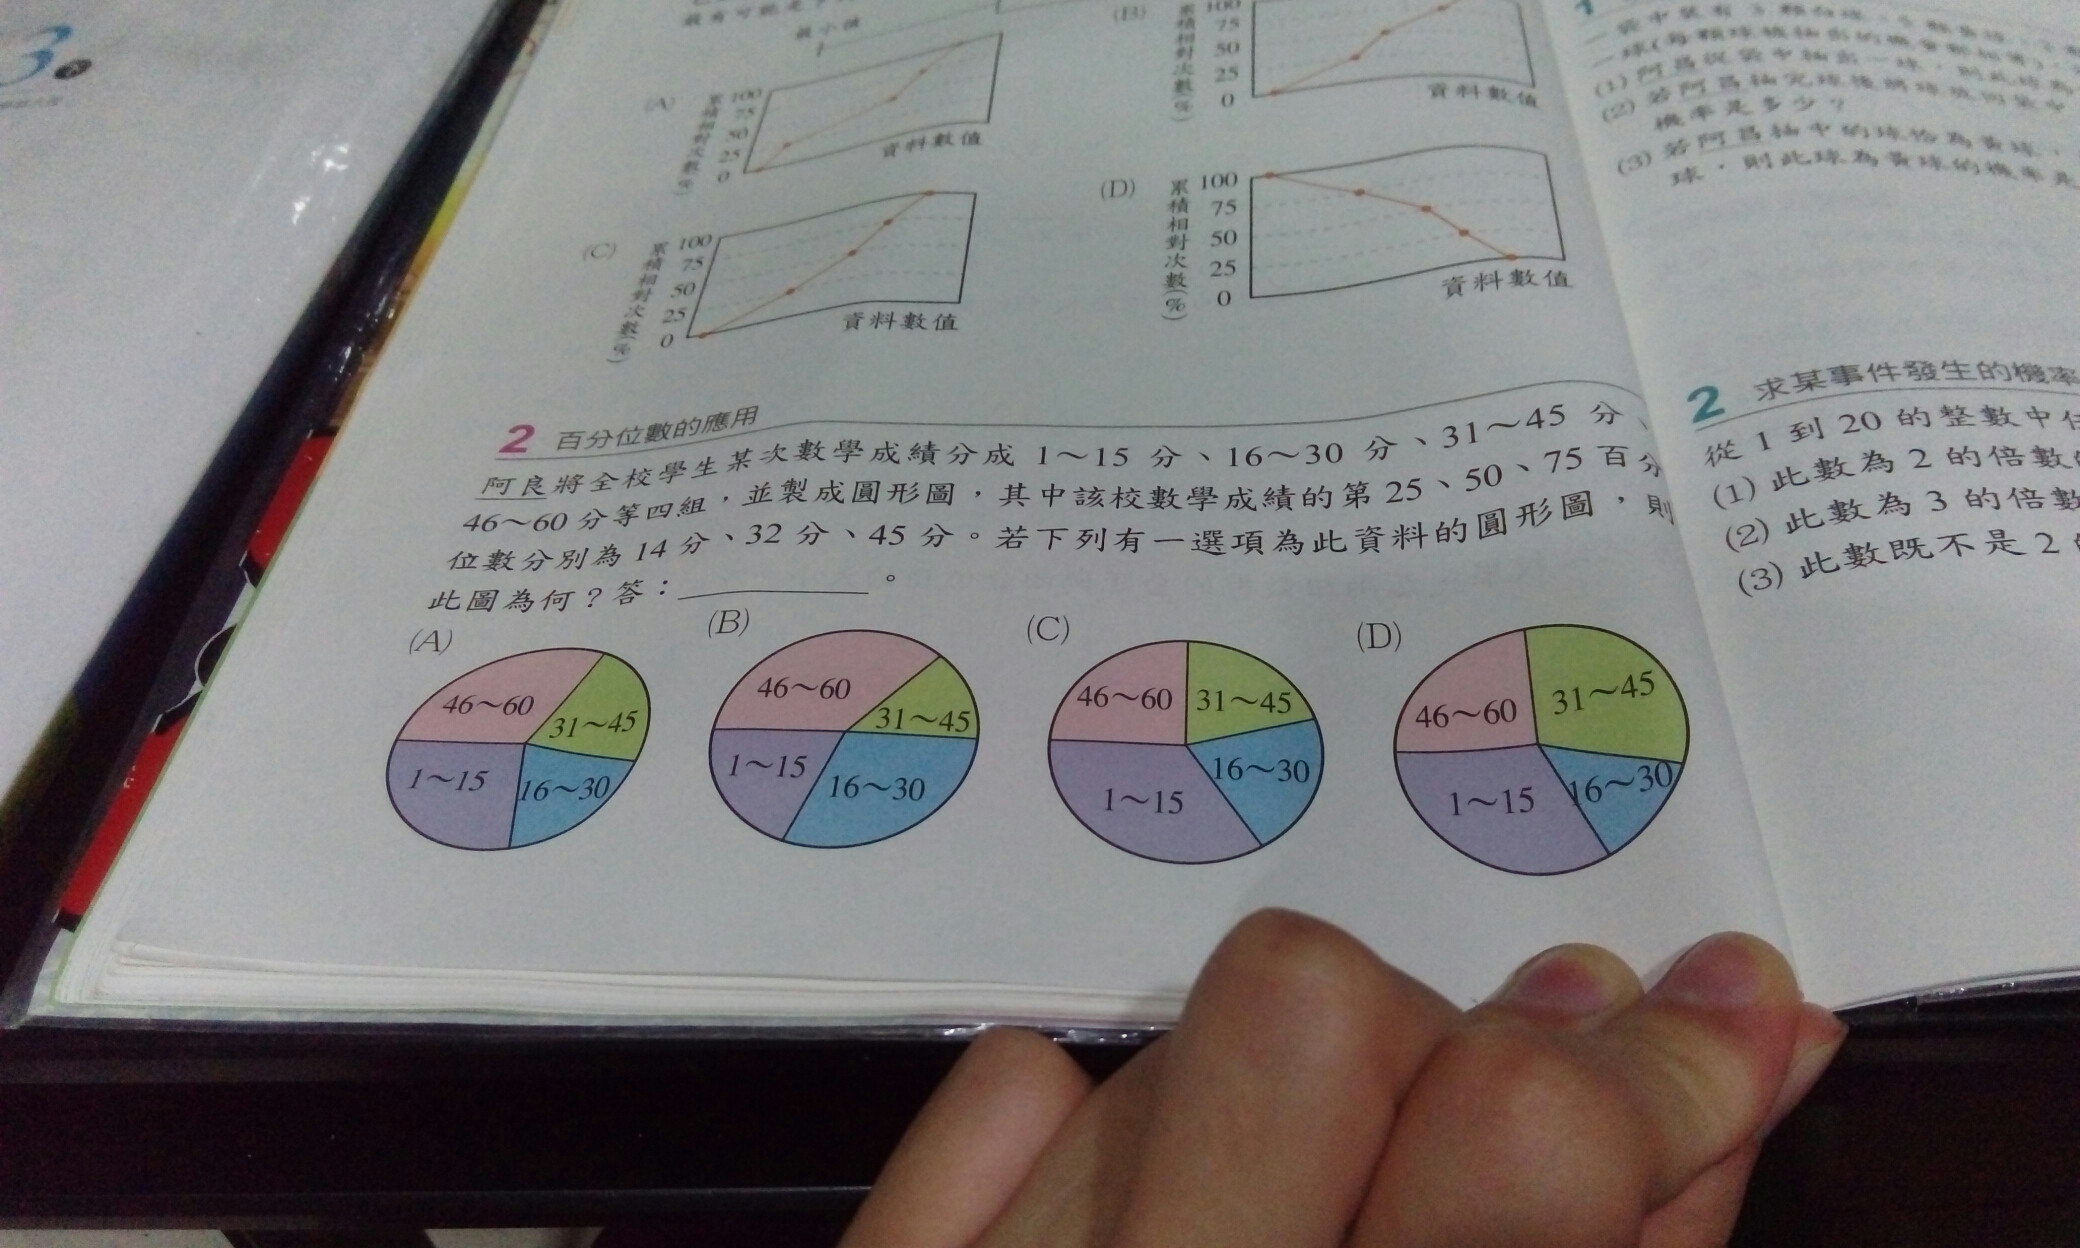 3
最小值
(A)
累積相對次數(%)
100
75
50
25
0
資料數值
(B)
累積相對次數(%)
100
75
50
25
0
資料數值
(C)
累積相對次數(%)
100
75
50
25
0
資料數值
(D)
累積相對次數(%)
100
75
50
25
0
資料數值
2 百分位數的應用
阿良將全校學生某次數學成績分成 1～15 分、16～30 分、31～45 分、
46～60 分等四組，並製成圓形圖，其中該校數學成績的第 25、50、75 百分
位數分別為 14 分、32 分、45 分。若下列有一選項為此資料的圓形圖，則
此圖為何？答：。
(A)
46～60
31～45
1～15
16～30
(B)
46～60
31～45
1～15
16～30
(C)
46～60
31～45
16～30
1～15
(D)
46～60
31～45
1～15
16～30
1
(1) 阿昌從袋中抽出一球，則此球為
(2) 若阿昌抽完球後將球放回袋中
機率是多少？
(3) 若阿昌抽中的球恰為黃球，
球，則此球為黃球的機率是
2 求某事件發生的機率
從 1 到 20 的整數中任
(1) 此數為 2 的倍數的
(2) 此數為 3 的倍數
(3) 此數既不是 2 的